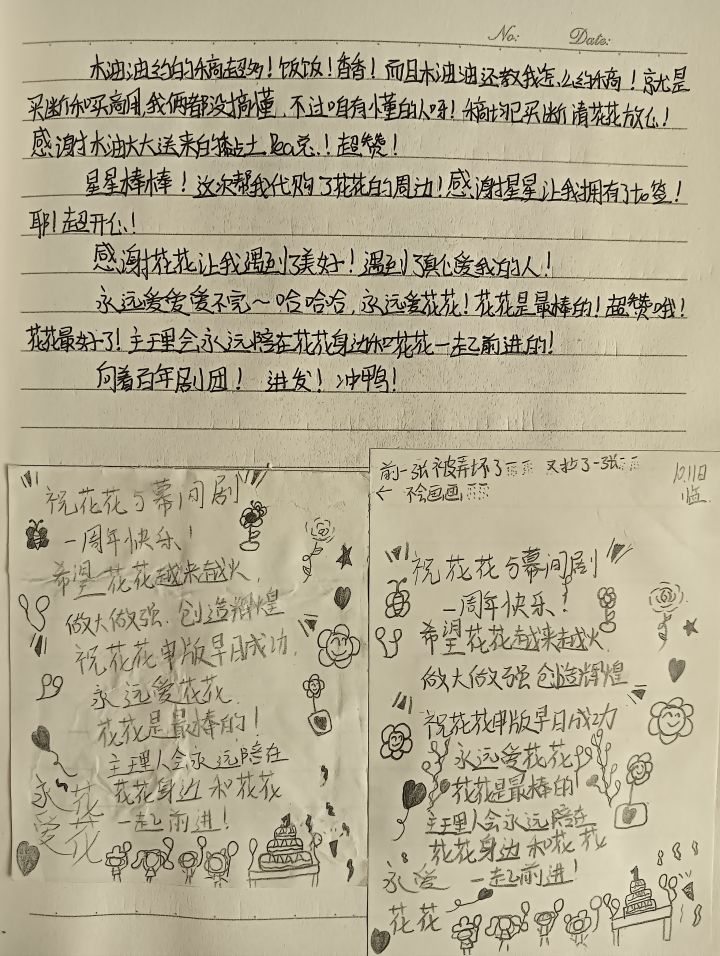 No: Date:
木油油约的稿超多！饭饭！香香！而且木油油还教我怎么约稿！就是
买断和买商用我俩都没搞懂，不过咱有懂的人呀！稿均已买断 请花花放心！
感谢木油大大送来的黏土 超赞！
星星棒棒！这次帮我代购了花花的周边！感谢星星让我拥有了to签！
耶！超开心！
感谢花花让我遇到了美好！遇到了真心爱我的人！
永远爱爱爱不完～哈哈哈，永远爱花花！花花是最棒的！超赞哦！
花花最好了！主理会永远陪在花花身边和花花一起前进的！
向着百年剧团！ 进发！冲鸭！
祝花花与幕间剧
一周年快乐！
希望花花越来越火，
做大做强，创造辉煌
祝花花单版早日成功，
永远爱花花，
花花是最棒的！
主理人会永远陪在
花花身边 和花花
一起前进！
永爱
花花
前一张被弄坏了 又抄了一张
← 不会画画
10.11日
临
祝花花与幕间剧
一周年快乐！
希望花花越来越火
做大做强 创造辉煌
祝花花单版早日成功
永远爱花花
花花是最棒的
主理人会永远陪在
花花身边 和花花
一起前进！
永爱
花花
1